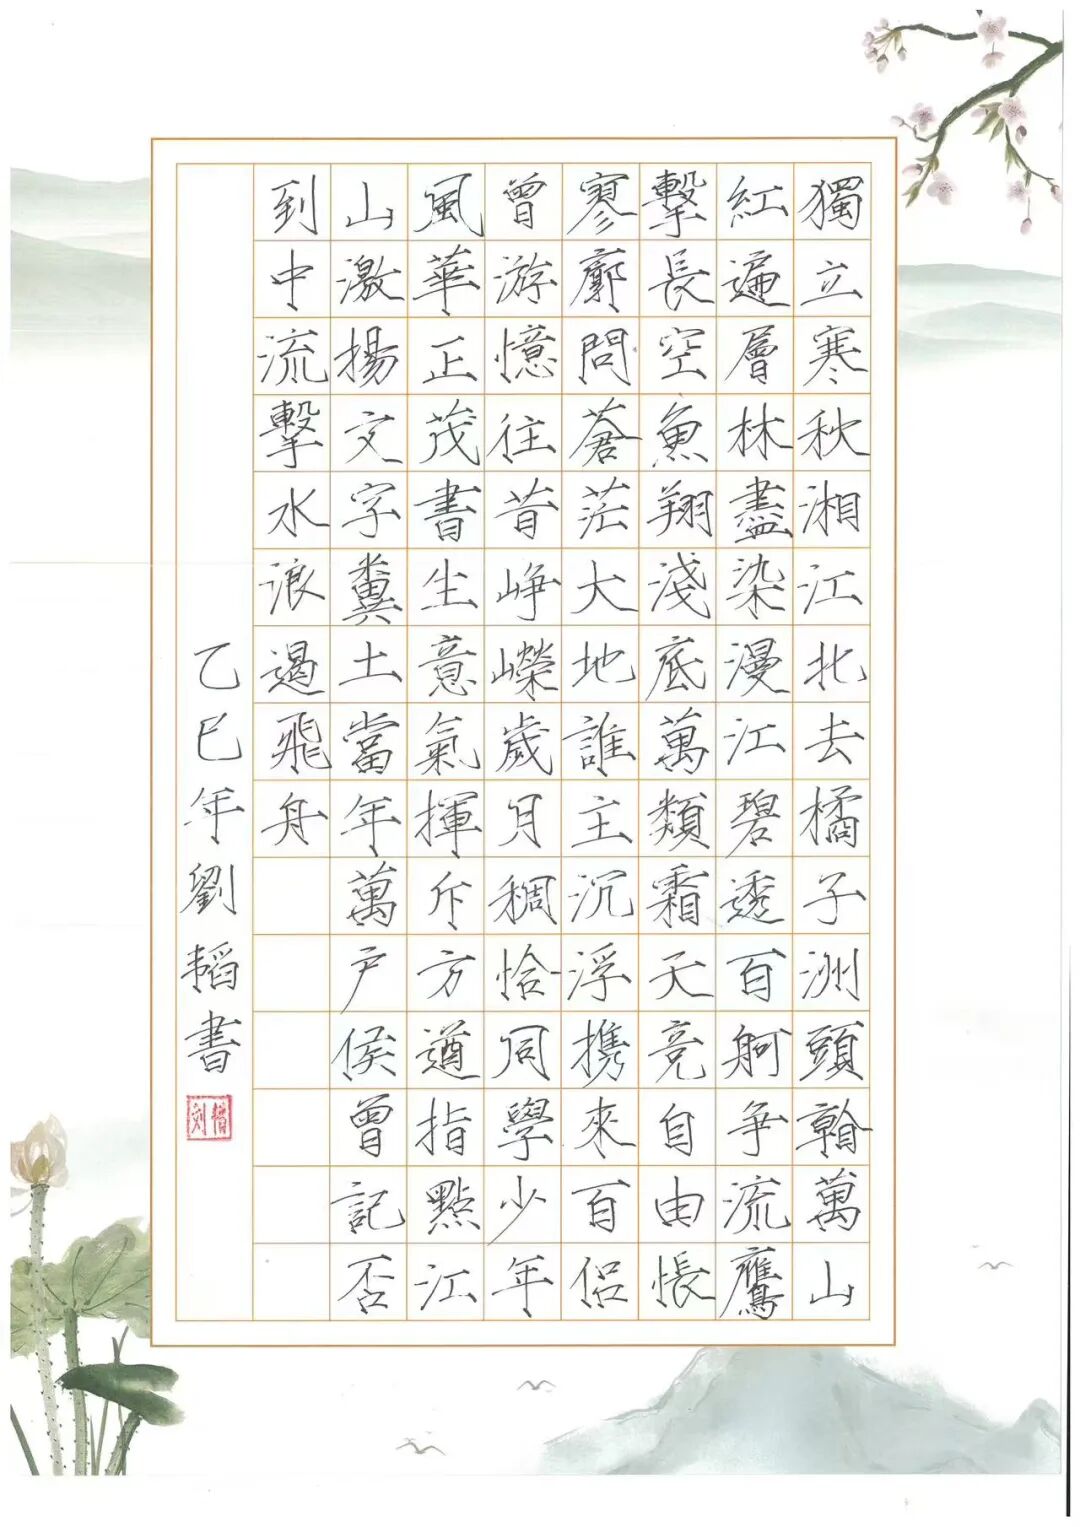 獨立寒秋湘江北去橘子洲頭看萬山
紅遍層林盡染漫江碧透百舸争流鷹
擊長空魚翔淺底萬類霜天竞自由悵
寥廓問蒼茫大地誰主沉浮携來百侣
曾游憶往昔峥嶸歲月稠恰同學少年
風華正茂書生意氣揮斥方遒指點江
山激揚文字糞土當年萬户侯曾記否
到中流擊水浪遏飛舟
乙巳年劉韜書